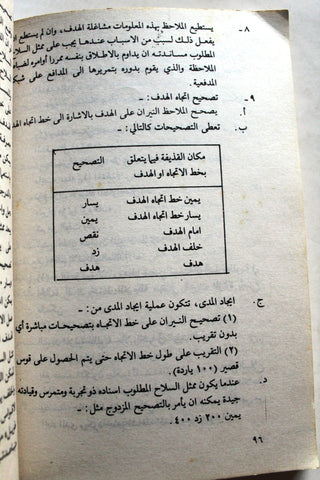 ٨- يستطيع الملاحظ بهذه المعلومات مشاغلة الهدف، وان لم يستطع ان
يفعل ذلك لسبب من الاسباب عندها يجب على ممثل السلاح
المطلوب مساندته ان يداوم بالاطلاق بنفسه مررا اوامره
الملاحظة والذي يقوم بدوره بتمريرها الى المدافع على
المدفعية.
٩- تصحيح اتجاه الهدف: -
أ. يصحح الملاحظ النيران على الهدف بالاشارة الى خط اتجاه الهدف
ب. تعطى التصحيحات كالتالي: -
مكان القذيفة فيما يتعلق التصحيح
بخط الاتجاه او الهدف
يمين خط اتجاه الهدف يسار
يسار خط اتجاه الهدف يمين
امام الهدف نقص
خلف الهدف زد
هدف هدف
ج. ايجاد المدى، تتكون عملية ايجاد المدى من: -
(١) تصحيح النيران على خط الاتجاه بتصحيحات مباشرة أي
بدون تقريب.
(٢) التقريب على طول خط الاتجاه حتى يتم الحصول على قوس
قصير (١٠٠ ياردة).
د. عندما يكون ممثل السلاح المطلوب اسناده ذو تجربة ومتمرس وقيادته
جيدة يمكنه ان يأمر بالتصحيح المزدوج مثل: -
يمين ٢٠٠ زد ٤٠٠.
٩٦